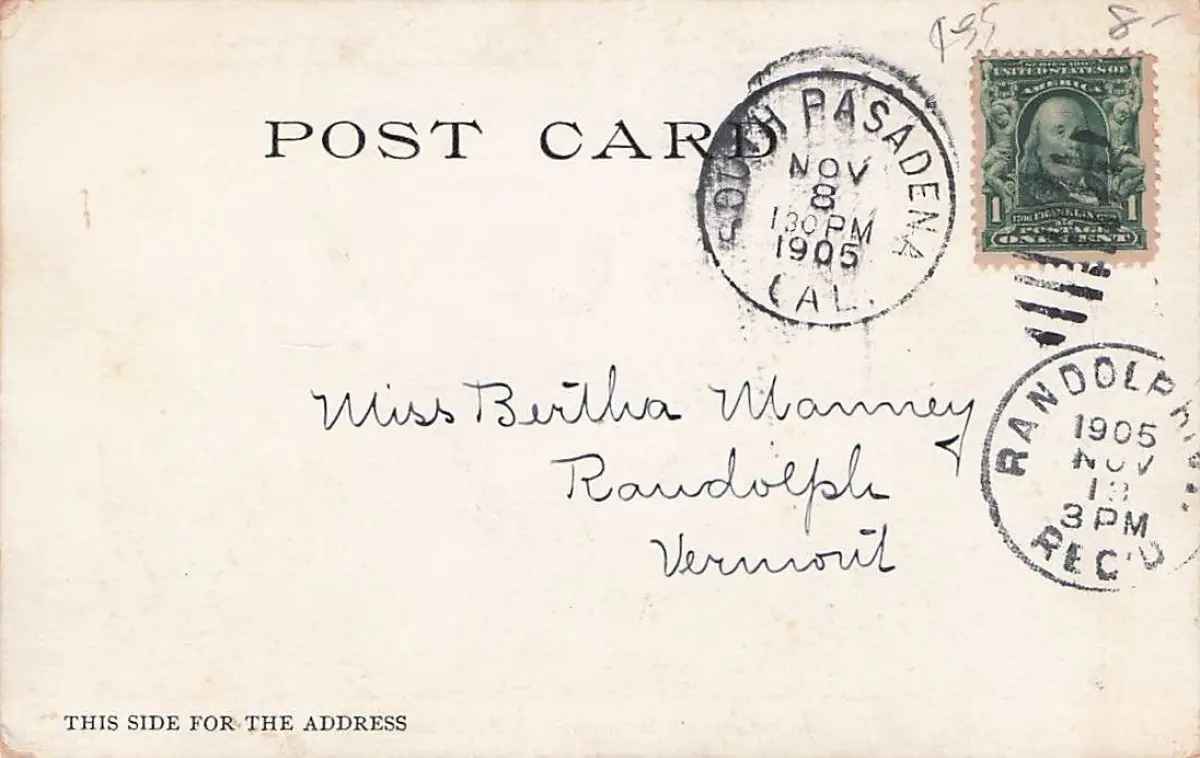 8-
POST CARD
SOUTH PASADENA
NOV
8
130PM
1905
CAL.
UNITED STATES OF
AMERICA
1 FRANKLIN 1
POSTAGE
ONE CENT
Miss Bertha Manney
Randolph
Vermont
RANDOLPH
1905
NOV
3PM
REC'D
THIS SIDE FOR THE ADDRESS